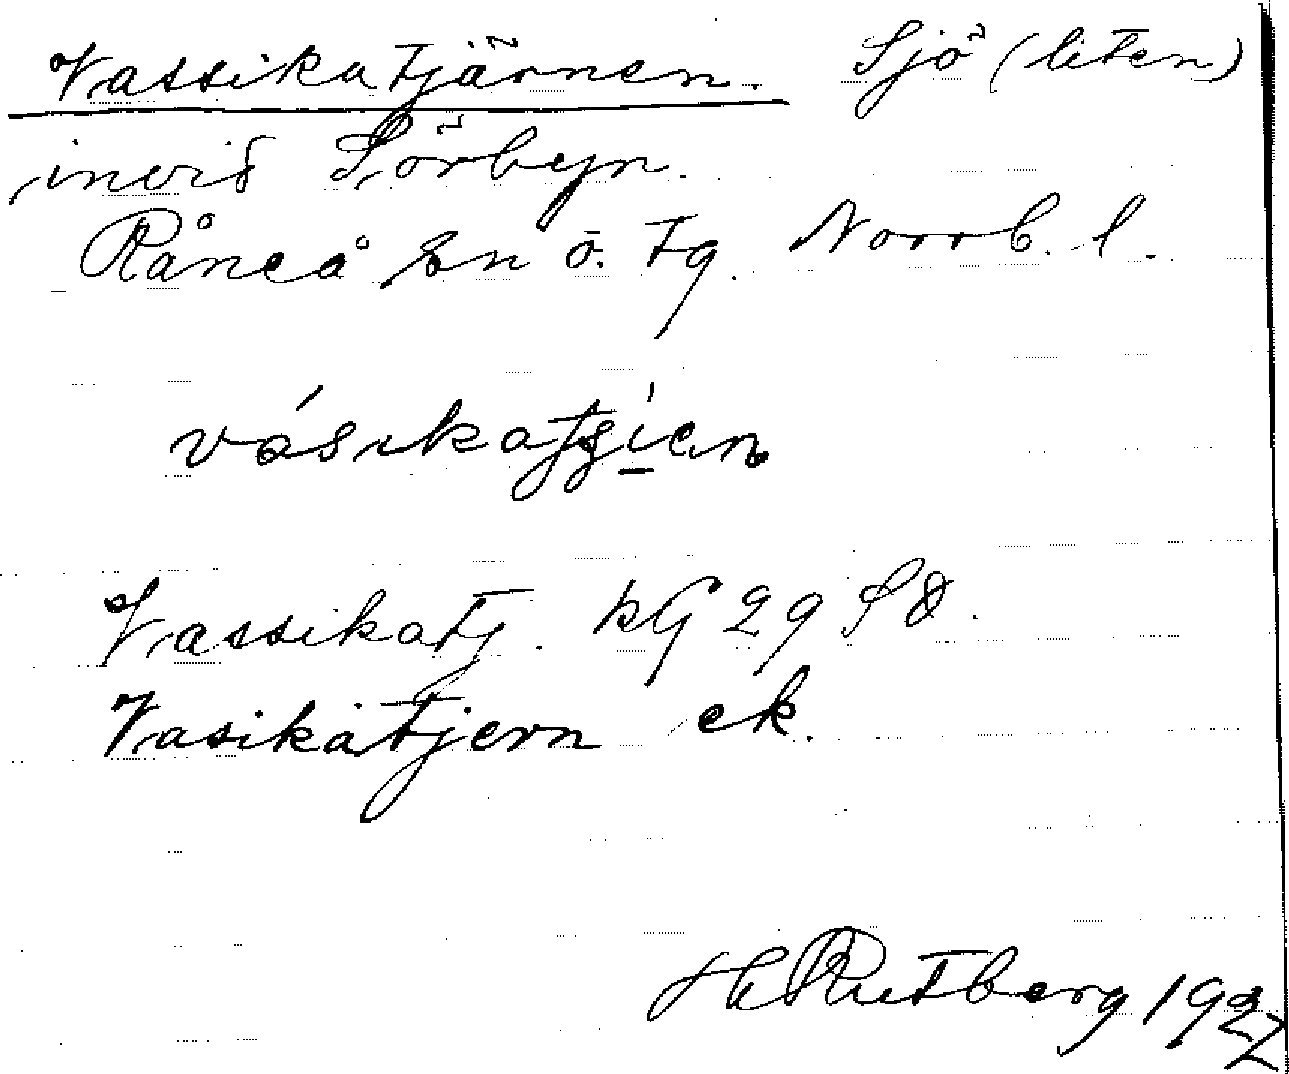 Vassikatjärnen. Sjö (liten)
invid Sörbyn.
Råneå sn ö. tg. Norrb. l.
Vassikatj. kG 29 SO.
Vasikátjern ek.
H Rutberg 1927